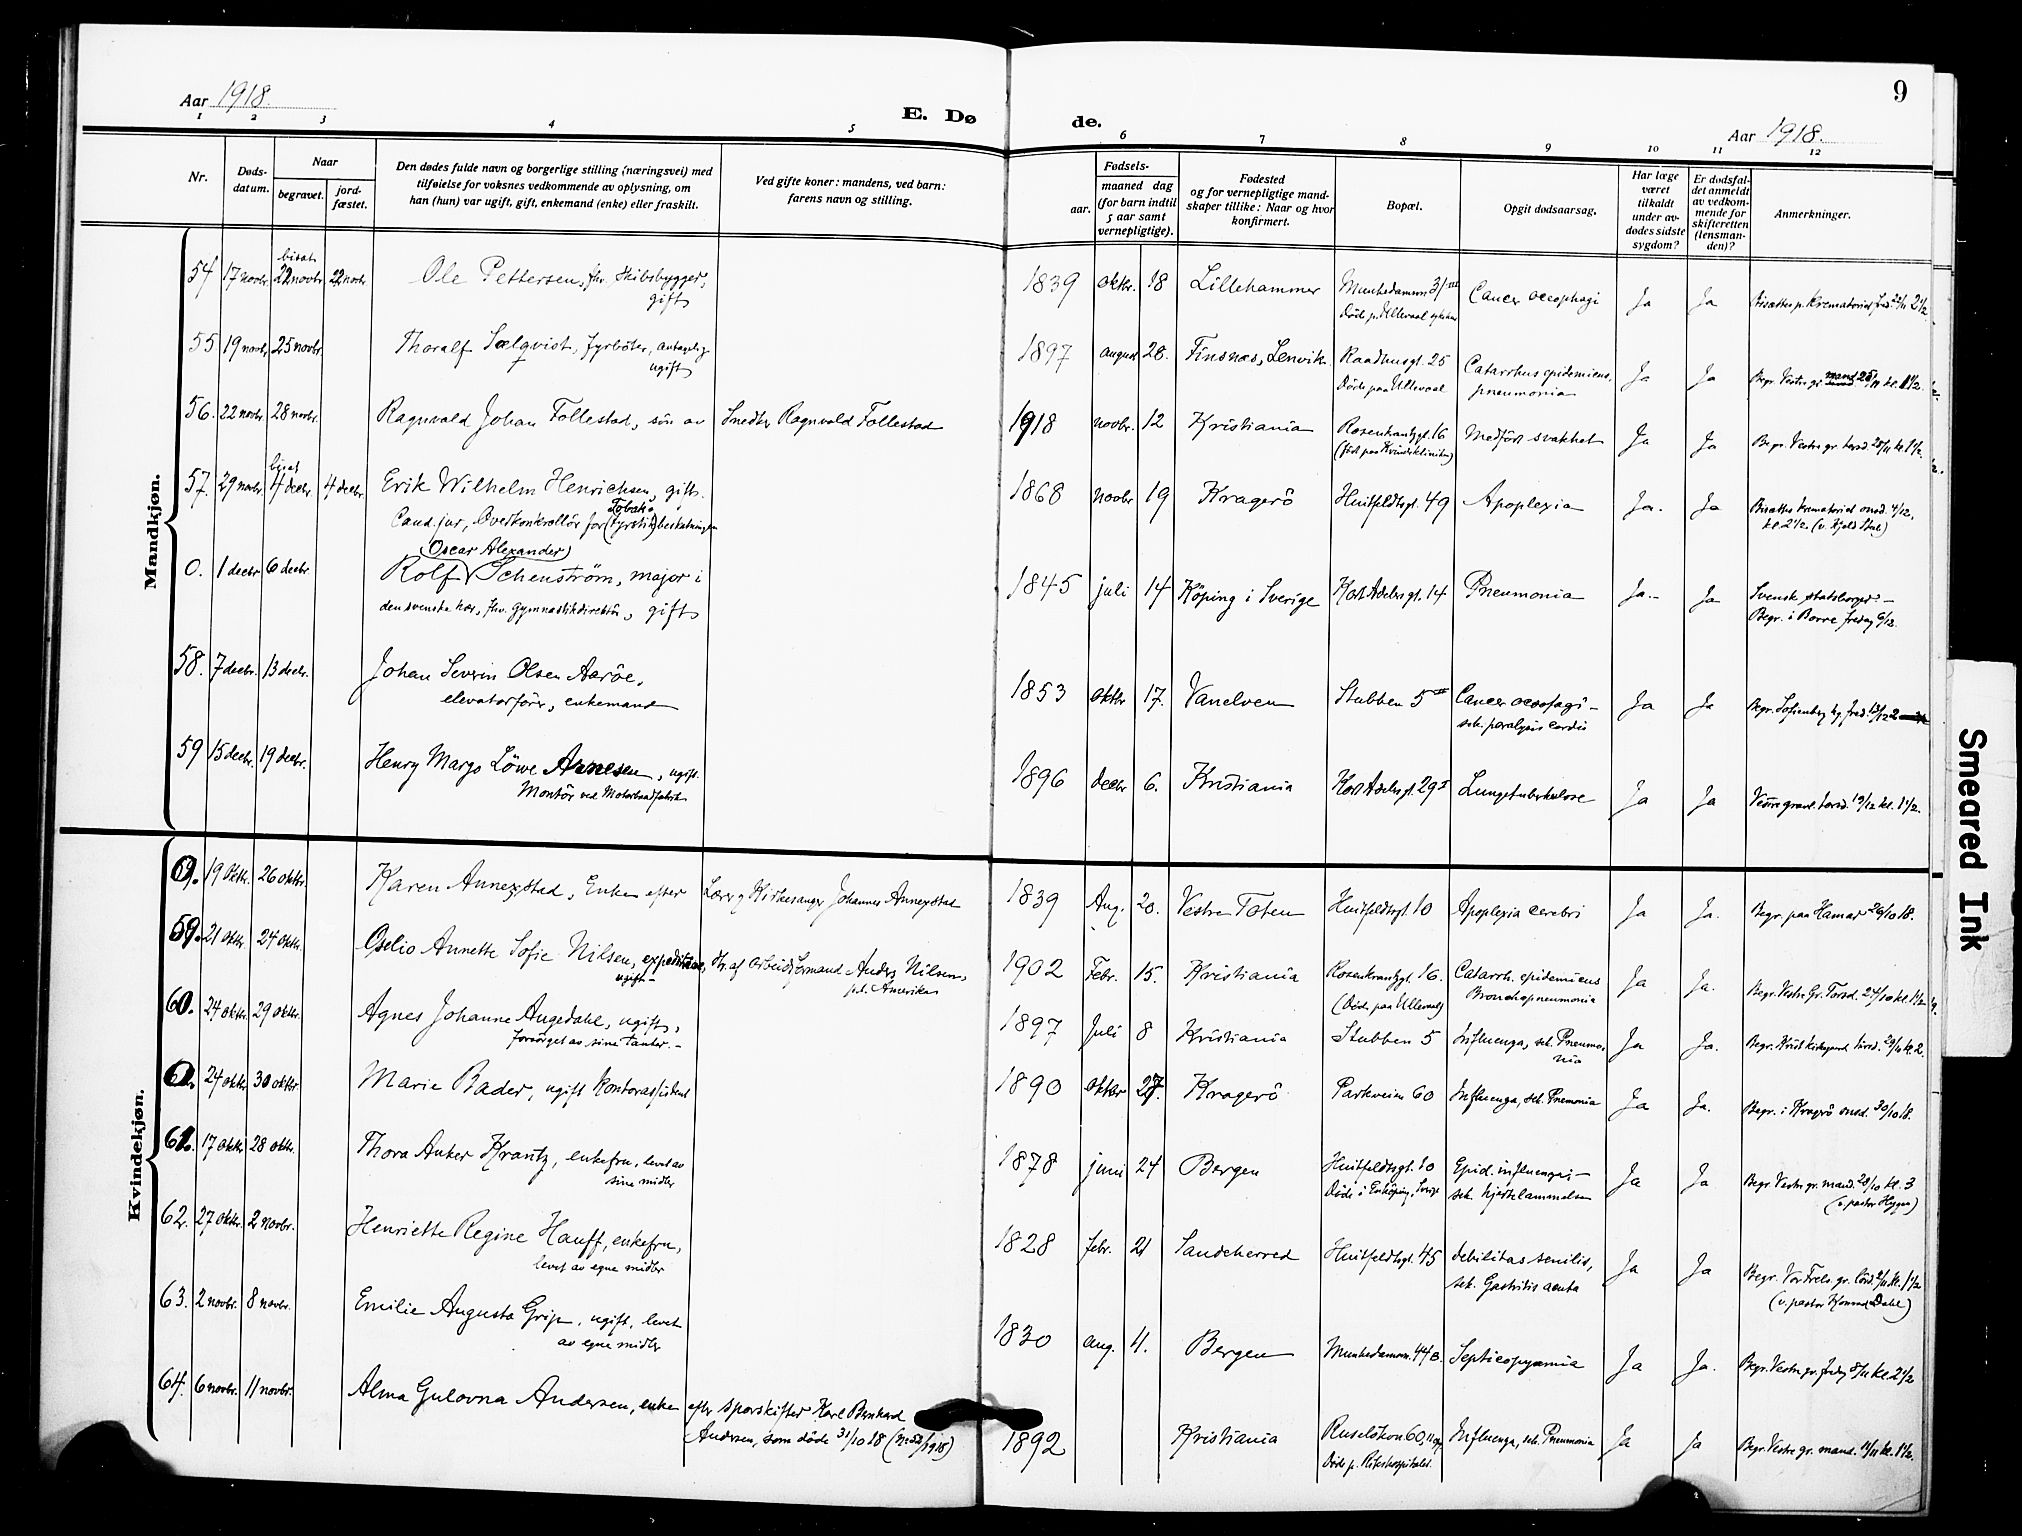 Aar 1918.
E. Dø
de.
9
Aar 1918.
1 2 3 4 5 6 7 8 9 10 11 12
Nr.
Døds-
datum.
Naar
begravet.
jord-
fæstet.
Den dødes fulde navn og borgerlige stilling (næringsvei) med
tilføielse for voksnes vedkommende av oplysning, om
han (hun) var ugift, gift, enkemand (enke) eller fraskilt.
Ved gifte koner: mandens, ved barn:
farens navn og stilling.
Fødsels-
aar.
maaned dag
(for barn indtil
5 aar samt
vernepligtige).
Fødested
og for vernepligtige mand-
skaper tillike: Naar og hvor
konfirmert.
Bopæl.
Opgit dødsaarsag.
Har læge
været
tilkaldt
under av-
dødes sidste
sygdom?
Er dødsfal-
det anmeldt
av vedkom-
mende for
skifteretten
(lensman-
den)?
Anmerkninger.
Mandkjøn.
bisat
54 17 novbr. 22 novbr. 22 novbr. Ole Pettersen, fhv. Skibsbygger, 1839 oktbr. 18 Lillehammer Munkedamsvn 31 Cancer oesophagi Ja Ja Bisættes p. Krematoriet fred. 22/11 2 1/2.
gift Døde p. Ullevaal sykehus
55 19 novbr. 25 novbr. Thoralf Sælqvist, fyrbøter, antagelig 1897 august 28. Finsnæs, Lenvik Raadhusgt. 25 Catarrhus epidemicus, Ja Ja Begr. Vestre gr. mand 25/11 kl. 1 1/2.
ugift Døde paa Ullevaal pneumonia
56. 22 novbr. 28 novbr. Ragnvald Johan Follestad, søn av Snedker Ragnvald Follestad 1918 novbr. 12 Kristiania Rosenkrantzgt. 16 Medfødt svakhet Ja Ja Begr. Vestre gr. torsd. 28/11 kl. 1 1/2.
(født paa Kvindeklinikken)
bisat
57. 29 novbr. 4 decbr. 4 decbr. Erik Wilhelm Henrichsen, gift. 1868 novbr 19 Kragerö Huitfeldtsgt. 49 Apoplexia Ja. Ja Bisættes krematoriet onsd. 4/12.
Tobak-
Cand. jur, Overkontrollör for (fyrstik) beskatningen kl. 2 1/2. (v. Kjeld Stub)
(Oscar Alexander)
0. 1 decbr 6 decbr. Rolf Schenström, major i 1845 juli 14 Köping i Sverige Kort Adelers gt. 14 Pneumonia Ja.- Ja Svensk statsborger.-
den svenske hær, fhv. gymnastikdirektör, gift Begr. i Borre fredag 6/12.
58. 7 decbr. 13 decbr. Johan Severin Olsen Aaröe, 1853 oktbr 17. Vanelven Stubben 5 Cancer oesofagi - Ja Ja Begr. Sofienberg kg. fred. 13/12 2
elevatorfører, enkemand sek. paralysis cordis
59 15 decbr. 19 decbr. Henry Margs Löwe Arnesen, ugift. 1896 decbr 6. Kristiania Kort Adelersgt. 29 I Lungetuberkulose Ja Ja Vestre gravl. torsd. 19/12 kl. 1 1/2.
Montör ved Motorbaadfabrik
Kvindekjøn.
69. 19 Oktbr. 26 oktbr. Karen Annexstad, Enke efter Lærer og Kirkesanger Johannes Annexstad 1839 Aug. 20. Vestre Toten Huitfeldtsgt. 10 Apoplexia cerebri Ja Ja. Begr. paa Hamar 26/10 18.
59. 21 oktbr. 24 oktbr. Oselio Annette Sofie Nilsen, expeditrice, dtr. af Arbeidsformand Anders Nilsen, 1902 Febr. 15. Kristiania Rosenkrantzgt. 16. Catarrh. epidemicus Ja Ja. Begr. Vestre Gr. Torsd. 24/10 kl. 1 1/2
ugift - p.t. Amerika (Døde paa Ullevaal) Bronchopneumonia
60. 24 oktbr. 29 oktbr. Agnes Johanne Augedahl, ugift, 1897 Juli 8 Kristiania Stubben 5 Influenza, sek. Pneumo- Ja Ja. Begr. Krist kirkegaard tirsd. 29/10 kl. 2.
forsörget av sine tanter.- nia
61. 24 oktbr 30 oktbr. Marie Bader, ugift kontorassistent 1890 oktbr 27. Kragerö Parkveien 60 Influenza, sek. Pnemonia Ja Ja. Begr. i Kragerö onsd. 30/10 18.
61. 17 oktbr 28 oktbr. Thora Anker Krantz, enkefru, levet av 1878 juni 24 Bergen Huitfeldtsgt. 10 Epid. influenza; - Ja Ja Begr. Vestre gr. mand. 28/10 kl. 3
sine midler Døde i Enköping, Sverige sek. hjertelammelse (v. pastor Hygen)
62. 27 oktbr. 2 novbr. Henriette Regine Hauff, enkefru, 1828 febr. 21 Sandeherred Huitfeldtsgt. 45 debilitas senilis, Ja Ja Begr. Vor Frels. gr. lörd. 2/11 kl. 1 1/2
levet av egne midler sek. Gastritis acuta (v. pastor Konrad Dahl)
63. 2 novbr. 8 novbr. Emilie Augusta Grip, ugift, levet 1830 aug. 4. Bergen Munkedamsvn. 44 B. Septicopyæmia Ja Ja. Begr. Vestre gr. fredag 8/11 kl. 2 1/2
av egne midler
64. 6 novbr. 11 novbr. Alma Gulovna Andersen, enke efter sporskifter Karl Bernhard 1892 Kristiania Ruselökvn 60, Influenza, sek. Pneumonia Ja Ja Begr. Vestre gr. mand. 11/11 kl. 1 1/2.
Andersen, som døde 31/10 18 (No 52/1918) Døde p. Rikshospitalet.
Smeared Ink